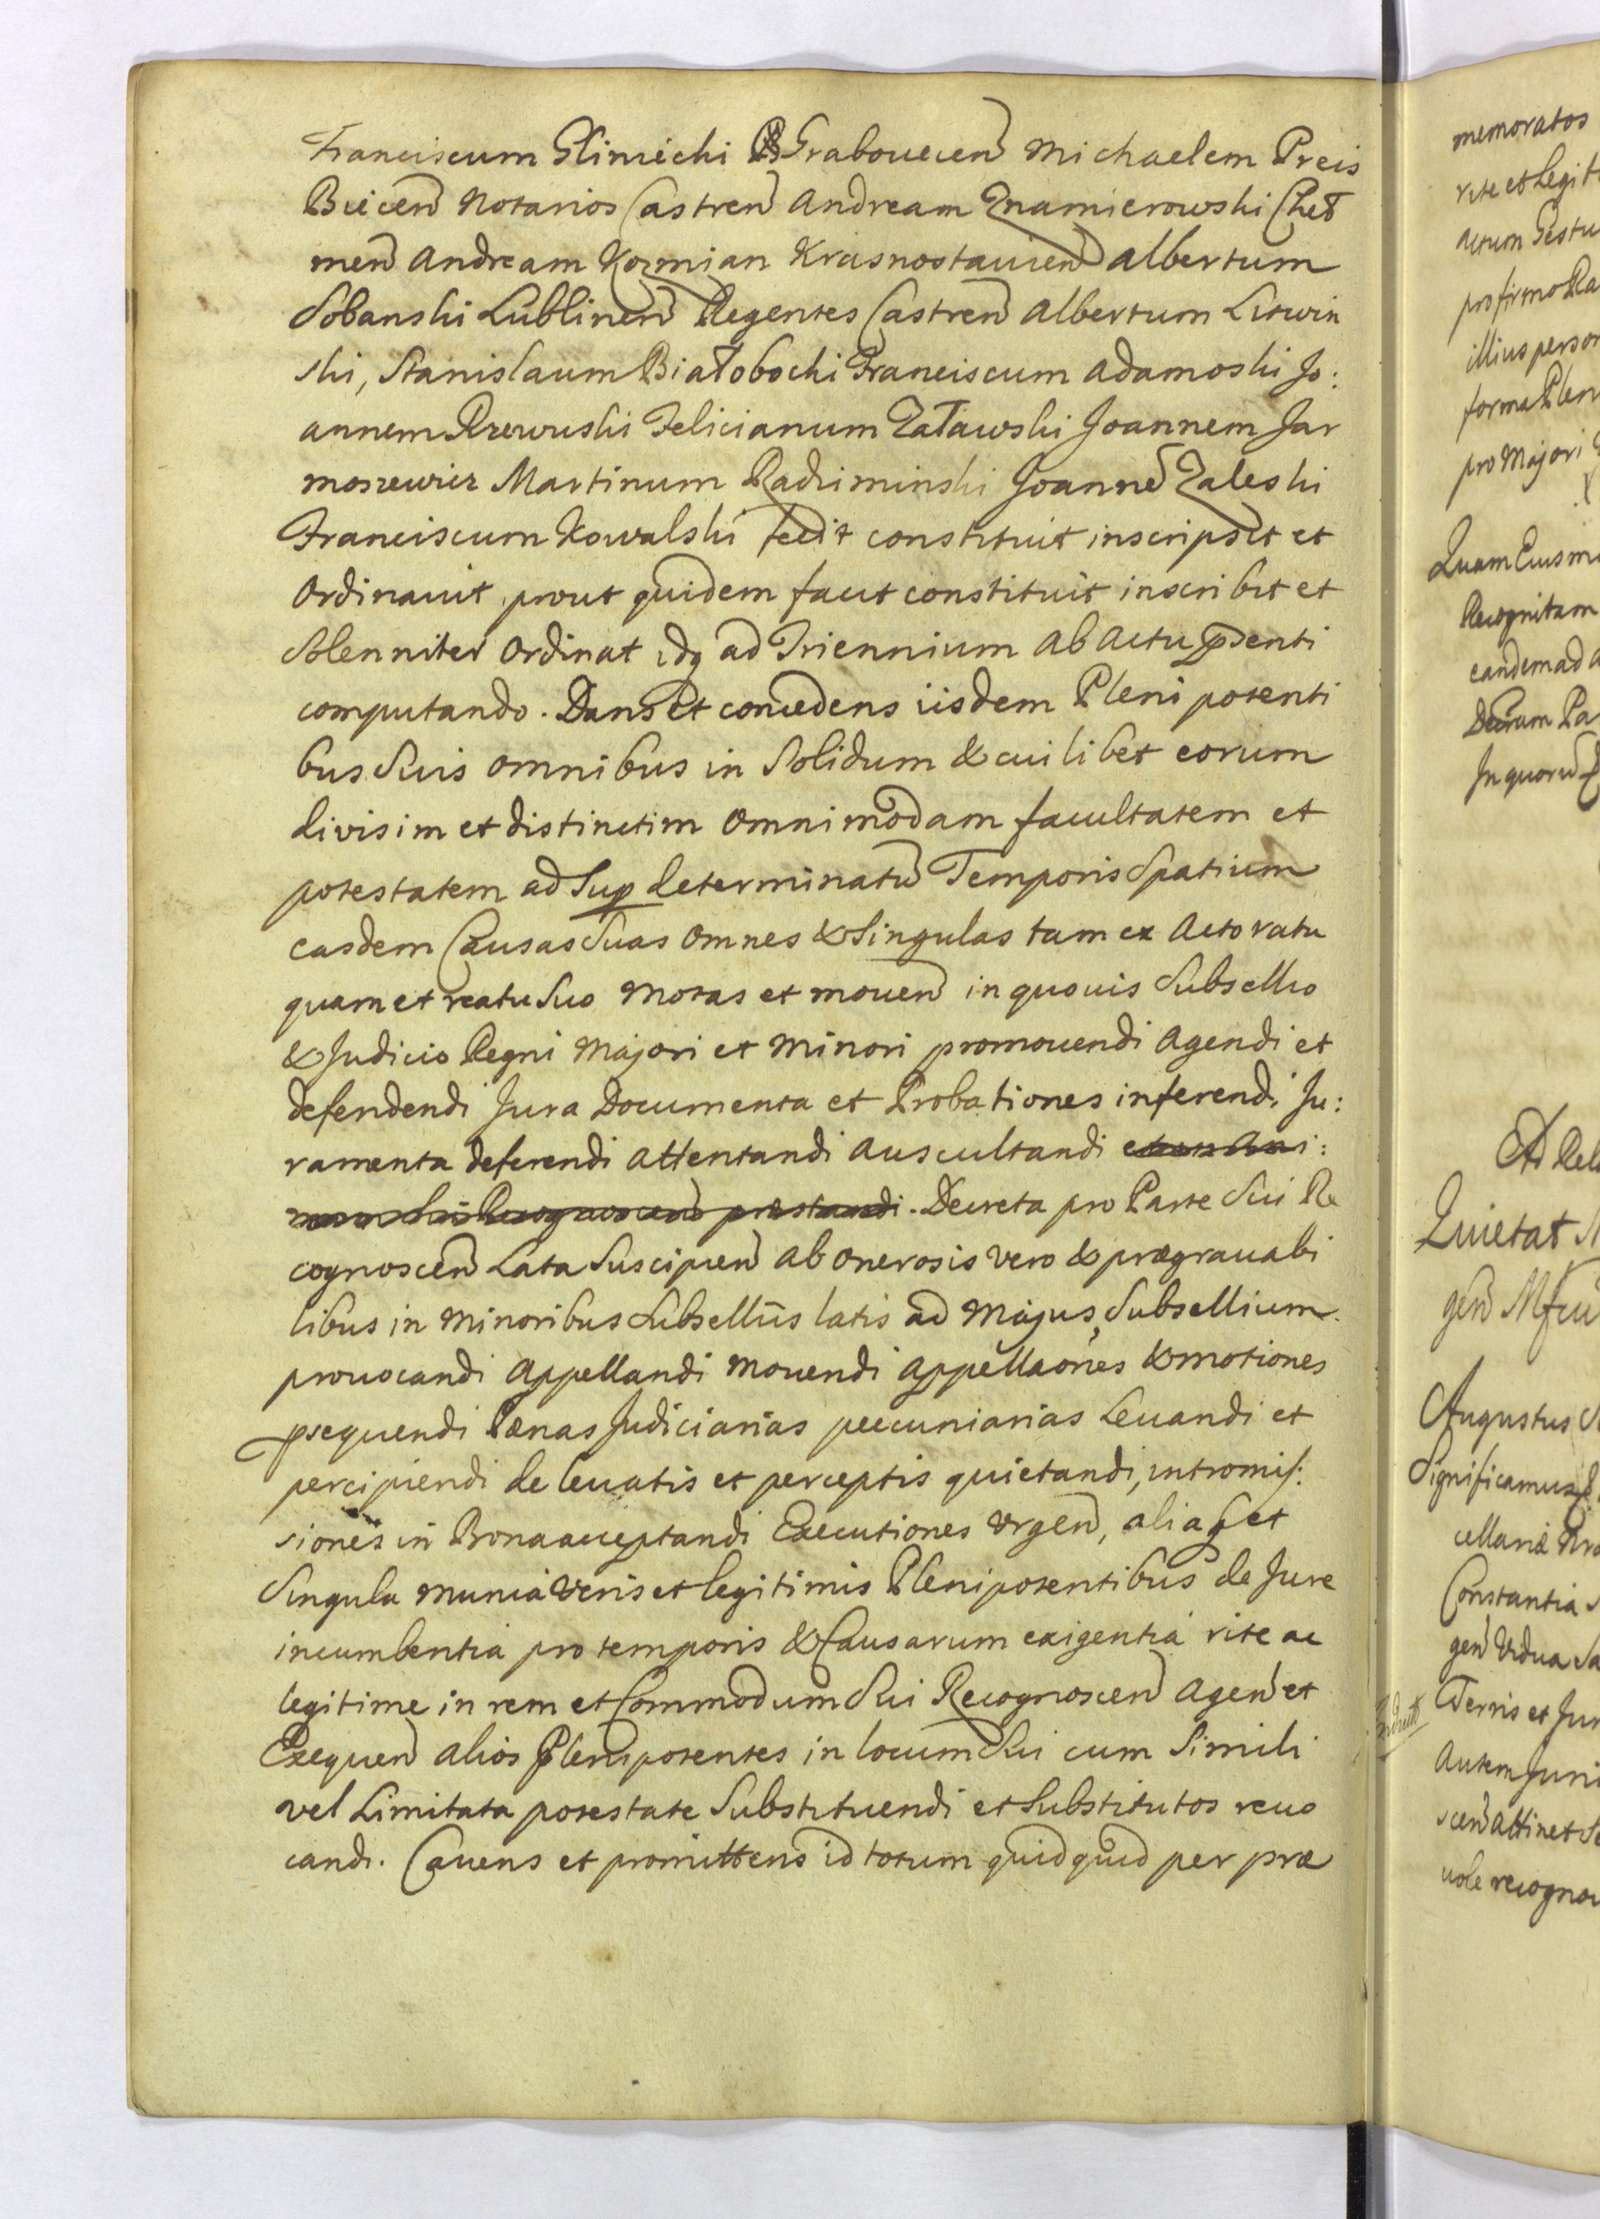 Franciscum Gliniecki Grabouecen Michaelem Preis
Biecen Notarios Castren Andream Znamierowski Cheł
men Andream Kozmian Krasnostauien Albertum
Sobanski Lublinen Regentes Castren Albertum Litwin
ski, Stanislaum Białobocki Franciscum Adamoski Jo:
annem Rzewuski Felicianum Załawski Joannem Jar
moszewicz Martinum Radziminski Joannē Zaleski
Franciscum Kowalski fecit constituit inscripsit et
Ordinauit, prout quidem facit constituit inscribit et
Solenniter Ordinat idq ad Triennium ab actu pnsenti
computando. Dans et concedens iisdem Plenipotenti
bus Suis omnibus in Solidum & cuilibet eorum
divisim et distinctim omnimodam facultatem et
potestatem ad Sup determinatū Temporis Spatium
easdem Causas Suas omnes & Singulas tam ex Actoratu
quam et reatu Suo motas et mouen in quouis Subsellio
& Judicio Regni Majori et Minori promouendi agendi et
defendendi Jura Documenta et Probationes inferendi Ju:
ramenta deferendi attentandi auscultandi
Decreta pro Parte Sui Re
cognoscen Lata Suscipien ab onerosis vero & prægrauabi
libus in Minoribus Subselliis latis ad Majus Subsellium
prouocandi Appellandi mouendi appellaões & motiones
psequendi Pænas Judiciarias peecuniarias Leuandi et
percipiendi de leuatis et perceptis quietandi, intromis:
siones in Bona acceptandi Executiones Vrgen, aliaq et
Singula munia Veris et legitimis Plenipotentibus de Jure
incumbentia pro temporis & Causarum exigentia rite ac
legitime in rem et Commodum Sui Recognoscen Agen et
Exequen alios Plenipotentes in locum Sui cum Simili
vel Limitata potestate Substituendi et Substitutos reuo
candi. Cauens et promittens id totum quidquid per præ
memoratos
rite et Legit
actum Gestu
pro firmo Ra
illius person
forma Plen
pro Majori
Quam Eiusm
Recognitam
eandem ad A
Decium Pa
In quorū
Ad Rel
Quietat
gen
Augustus
Significamus
cellariæ
Constantia
gen Vidua
Terris et Jur
Autem Juri
scen attinet
uole recogno